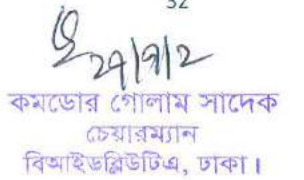 32
২৭/৭/২
কমডোর গোলাম সাদেক
চেয়ারম্যান
বিআইডব্লিউটিএ, ঢাকা।